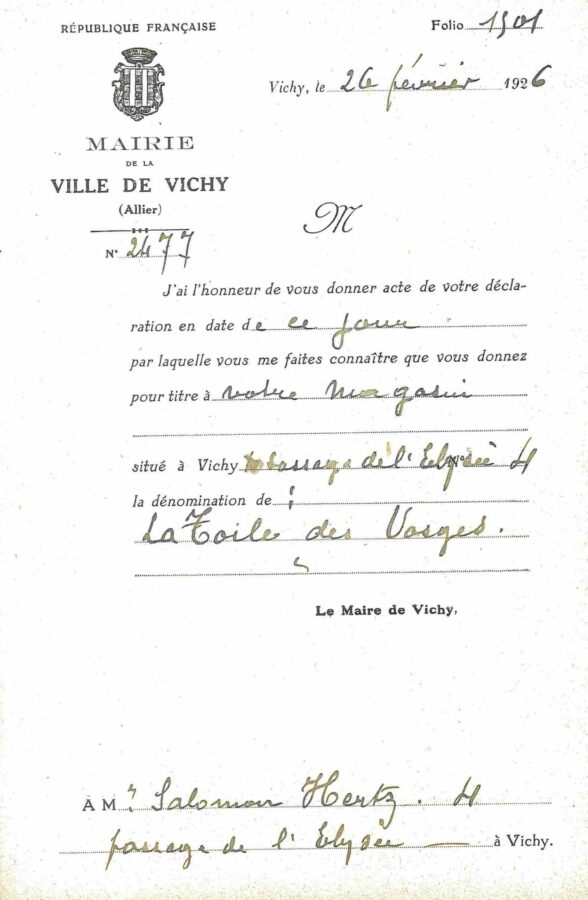 RÉPUBLIQUE FRANÇAISE
Folio 1501
Vichy, le 26 février 1926
MAIRIE
DE LA
VILLE DE VICHY
(Allier)
N° 2477
M
J'ai l'honneur de vous donner acte de votre décla-
ration en date de ce jour
par laquelle vous me faites connaître que vous donnez
pour titre à votre magasin
situé à Vichy passage de l'Elysée 4
la dénomination de :
La Toile des Vosges.
Le Maire de Vichy,
A M. Salomon Hertz. 4
passage de l'Elysée — à Vichy.